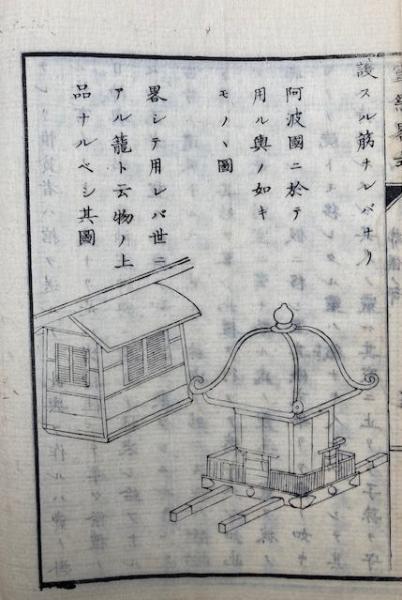 設スル筋ナルベサリ
阿波國ニ於テ
用ル輿ノ如キ
モノヽ圖
畧シテ用レバ世ニ
アル籠ト云物ノ上
品ナルベシ其圖